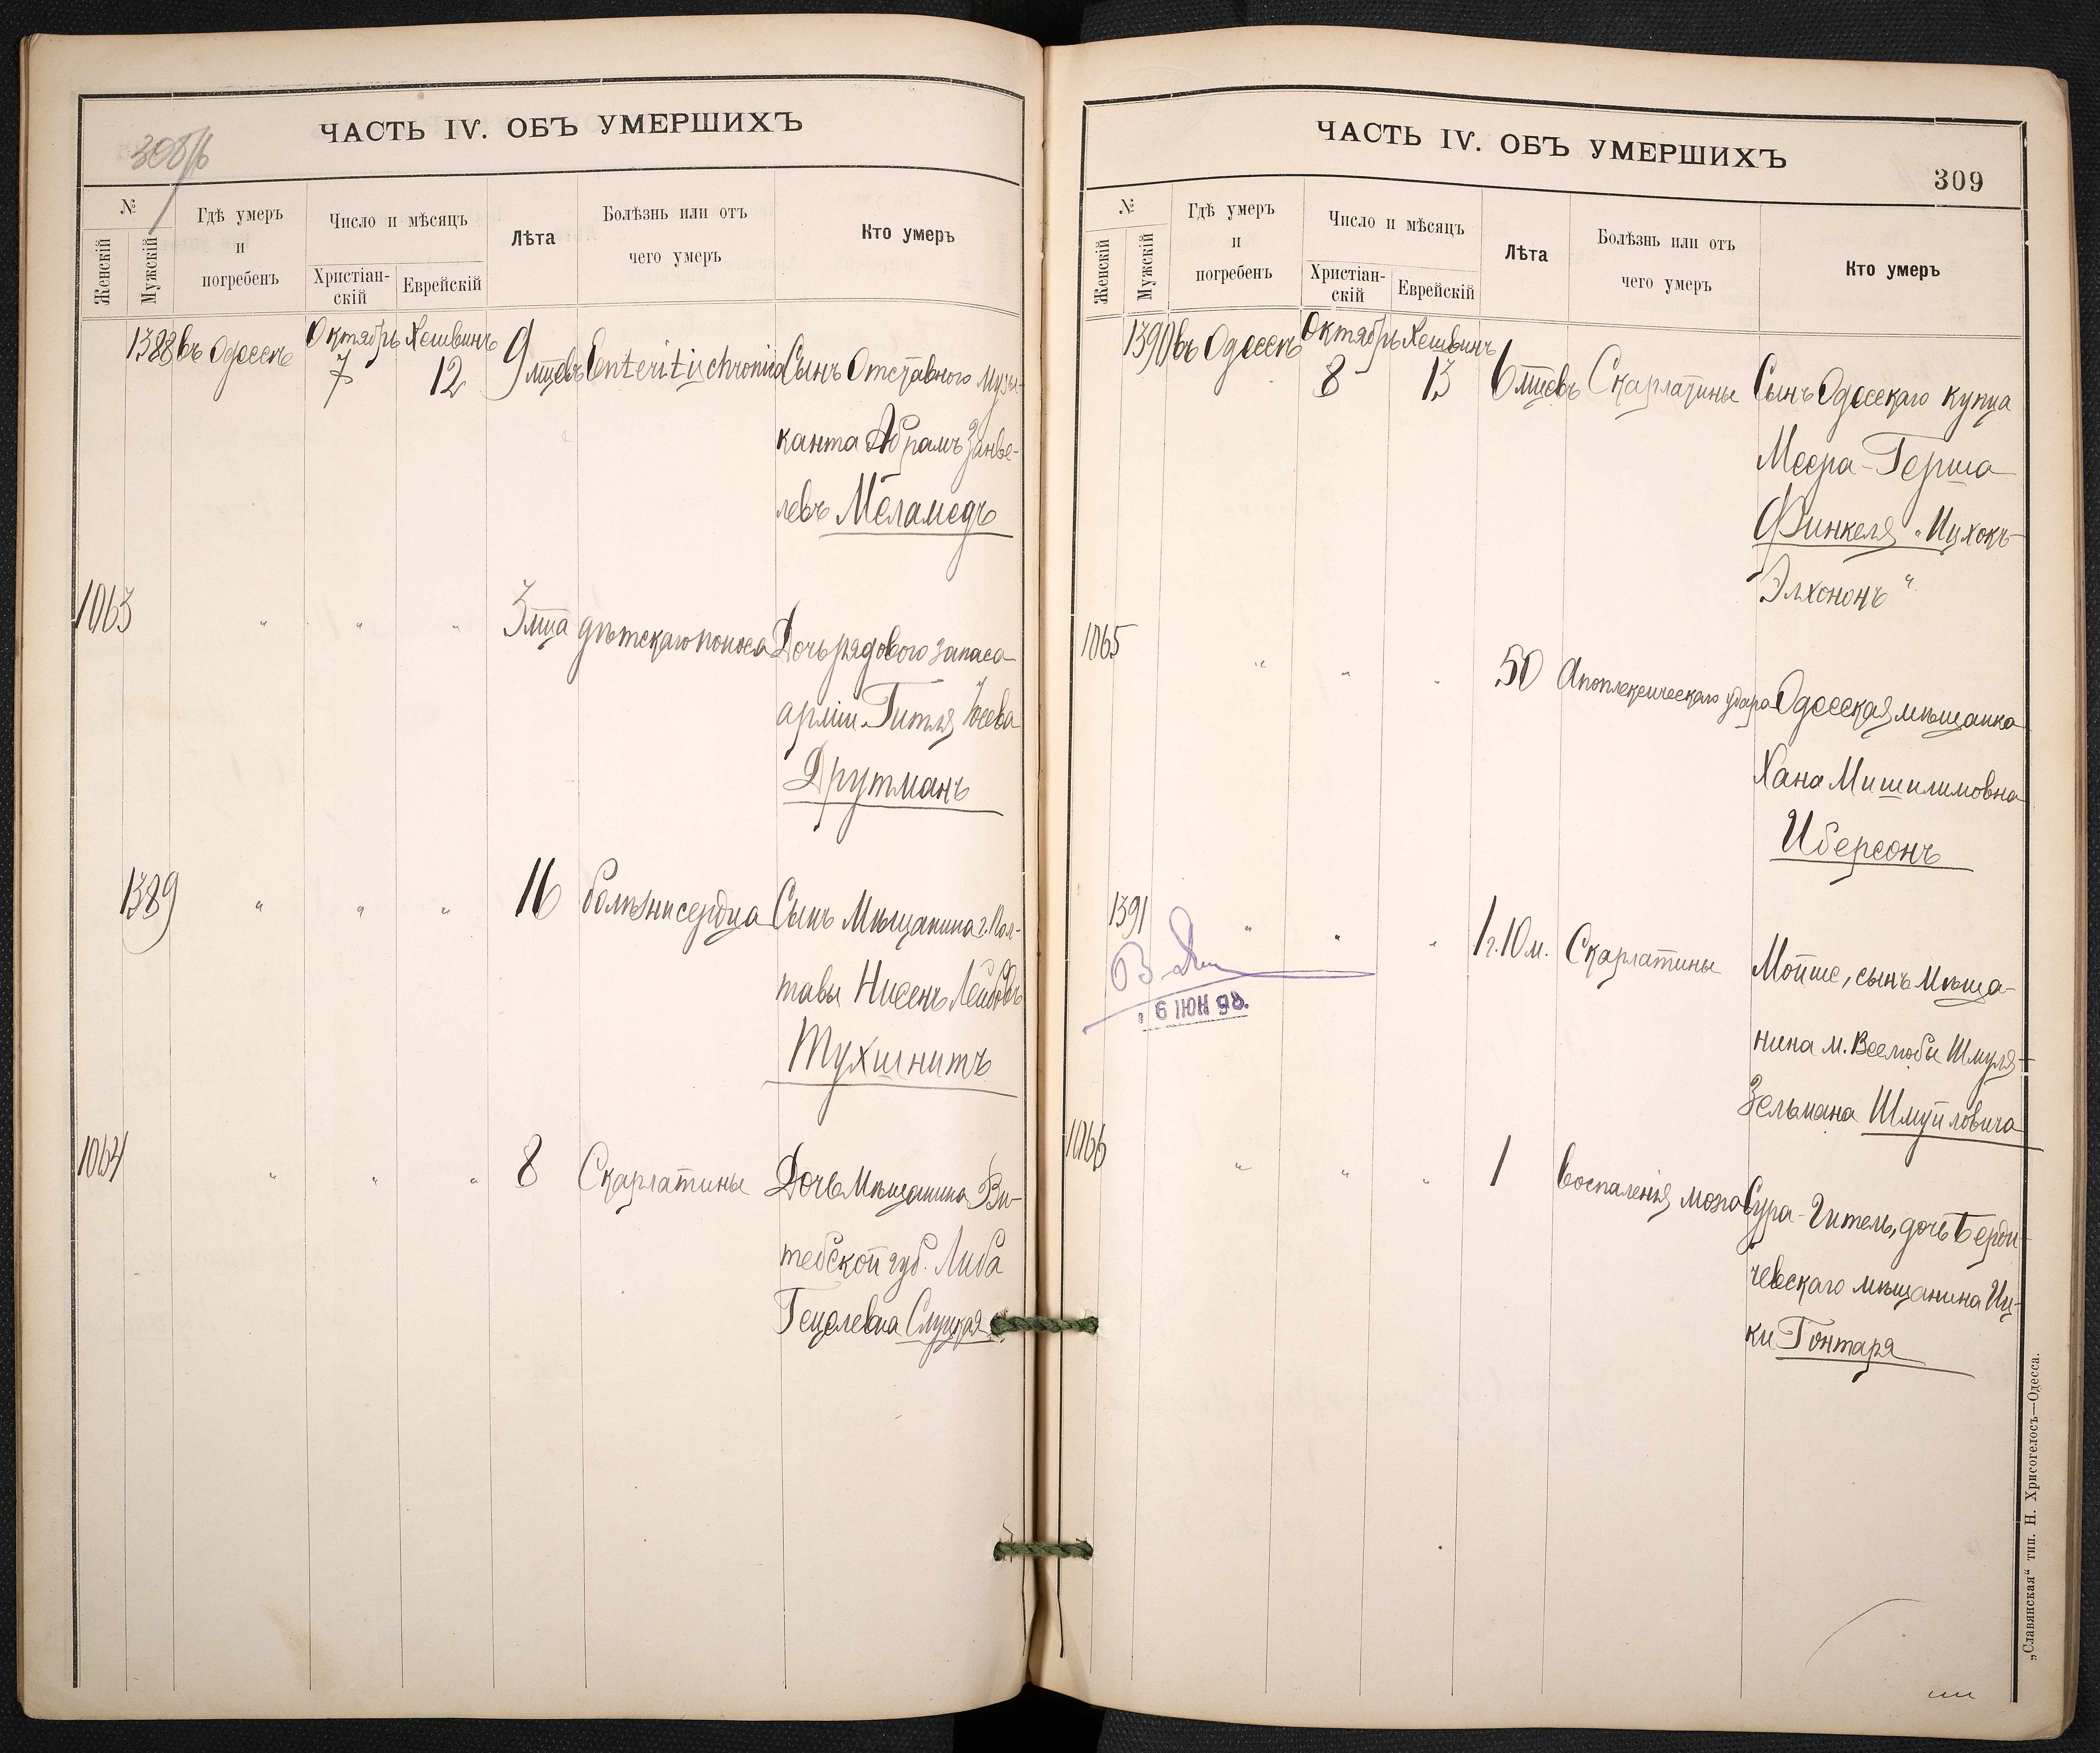 308/б
ЧАСТЬ IV. ОБЪ УМЕРШИХЪ
№
Женскій
Мужскій
Гдѣ умеръ
и
погребенъ
Число и мѣсяцъ
Христіан-
скій
Еврейскій
Лѣта
Болѣзнь или отъ
чего умеръ
Кто умеръ
1388 въ Одессѣ Октябрь 7 Хешвинъ 12 9 мцевъ Enteritis chronica Сынъ Отставного музы-
канта Абрамъ Занве-
левъ Меламедъ
1063 " " " 3 мца дѣтскаго поноса Дочь рядового запаса
арміи Гитля
Друтманъ
1389 " " " 16 болѣзни сердца Сынъ Мѣщанина г. Пол-
тавы Нисенъ Лейбовъ
Тухшнитъ
1064 " " " 8 Скарлатины Дочь Мѣщанина Ви-
тебской губ. Либа
Гецелевна Слуцкая
ЧАСТЬ IV. ОБЪ УМЕРШИХЪ
309
№
Женскій
Мужскій
Гдѣ умеръ
и
погребенъ
Число и мѣсяцъ
Христіан-
скій
Еврейскій
Лѣта
Болѣзнь или отъ
чего умеръ
Кто умеръ
1390 въ Одессѣ Октябрь 8 Хешвинъ 13 6 мцевъ Скарлатины Сынъ Одесскаго купца
Меера-Герша
Финкеля "Ицхокъ-
Элхононъ"
1065 " " " 50 Апоплексическаго удара Одесская мѣщанка
Хана Мишилимовна
Иберсонъ
1391 " " " 1 г. 10 м. Скарлатины Мойше, сынъ мѣща-
нина м. Вселюбы Шмуля-
Зельмана Шмуйловича
9 ІЮН 98.
1066 " " " 1 Воспаленія мозга Сура-Гитель, дочь Берди-
чевскаго мѣщанина Иц-
ки Гонтаря
„Славянская“ тип. Н. Хрисогелосъ—Одесса.